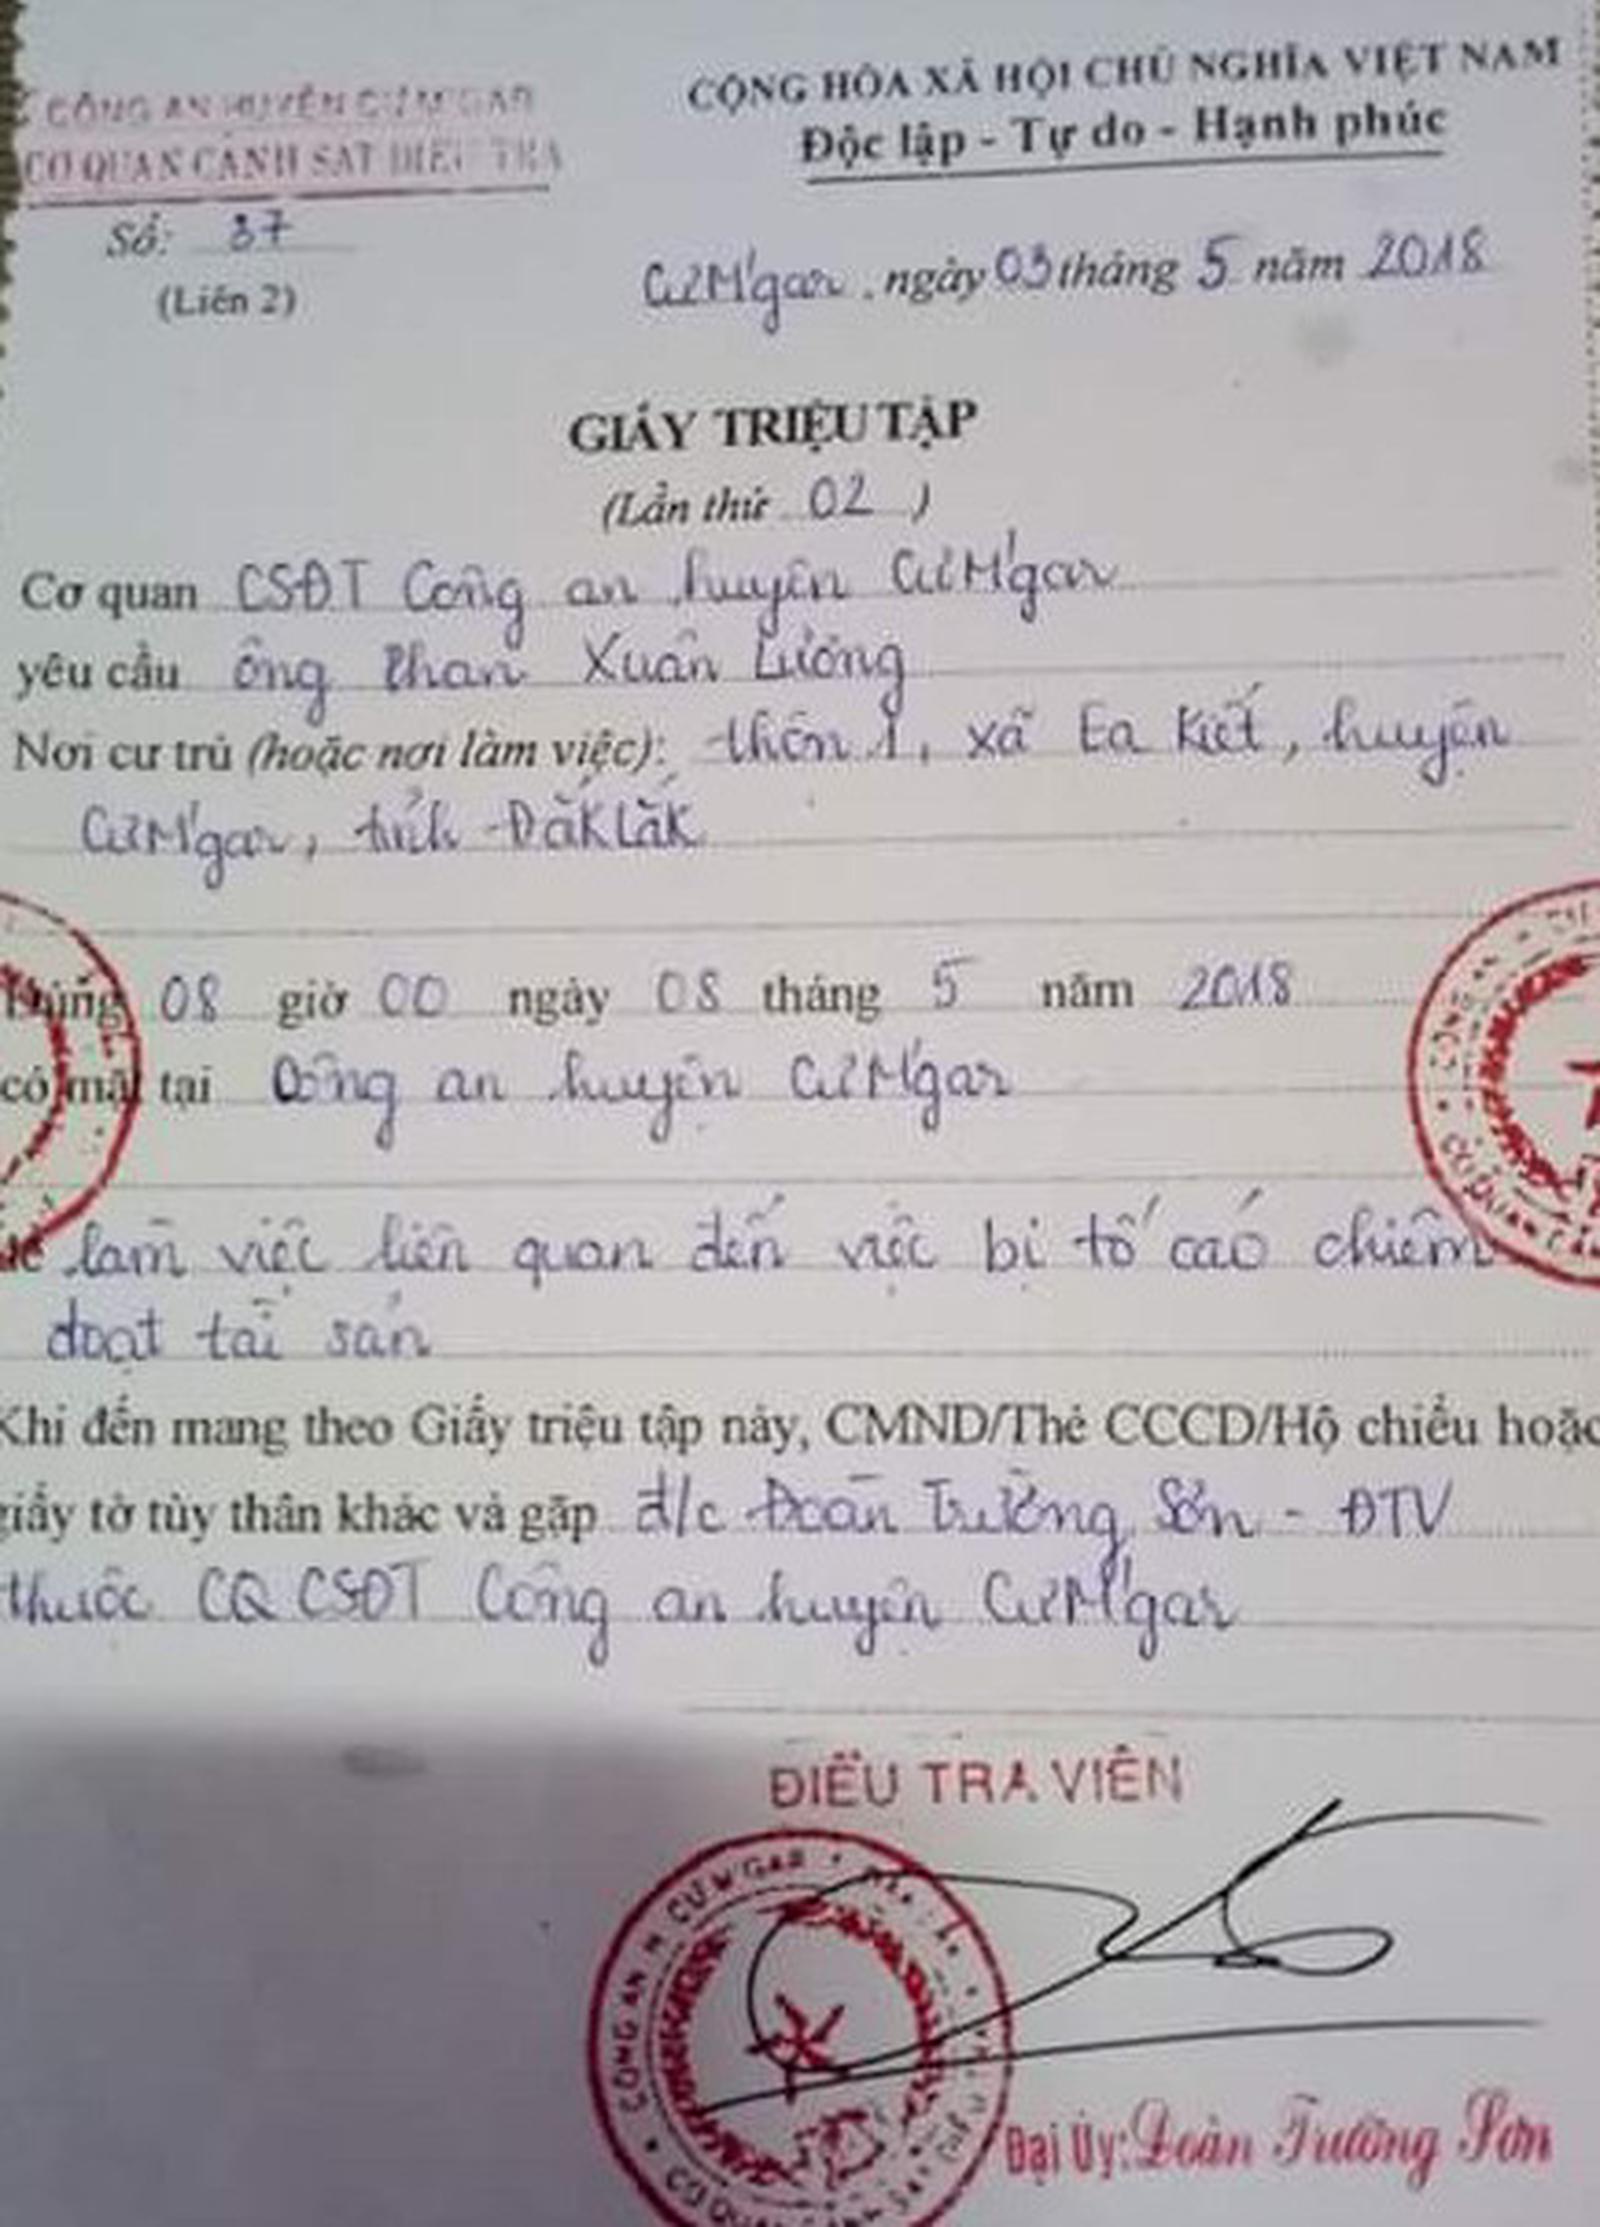 CÔNG AN HUYỆN CƯ M'GAR
CƠ QUAN CẢNH SÁT ĐIỀU TRA
Số: 37
(Liên 2)
CỘNG HÒA XÃ HỘI CHỦ NGHĨA VIỆT NAM
Độc lập - Tự do - Hạnh phúc
CưM'gar, ngày 03 tháng 5 năm 2018
GIẤY TRIỆU TẬP
(Lần thứ 02)
Cơ quan CSĐT Công an huyện CưM'gar
yêu cầu ông Phan Xuân Lương
Nơi cư trú (hoặc nơi làm việc): thôn 1, xã Ea Kiết, huyện
CưM'gar, tỉnh ĐắkLắk
Đúng 08 giờ 00 ngày 08 tháng 5 năm 2018
có mặt tại Công an huyện CưM'gar
làm việc liên quan đến việc bị tố cáo chiếm
đoạt tài sản
Khi đến mang theo Giấy triệu tập này, CMND/Thẻ CCCD/Hộ chiếu hoặc
giấy tờ tùy thân khác và gặp đ/c Đoàn Trường Sơn - ĐTV
thuộc CQCSĐT Công an huyện CưM'gar
ĐIỀU TRA VIÊN
CÔNG AN H CƯ M'GAR
CƠ QUAN CẢNH SÁT ĐIỀU
Đại Úy: Đoàn Trường Sơn